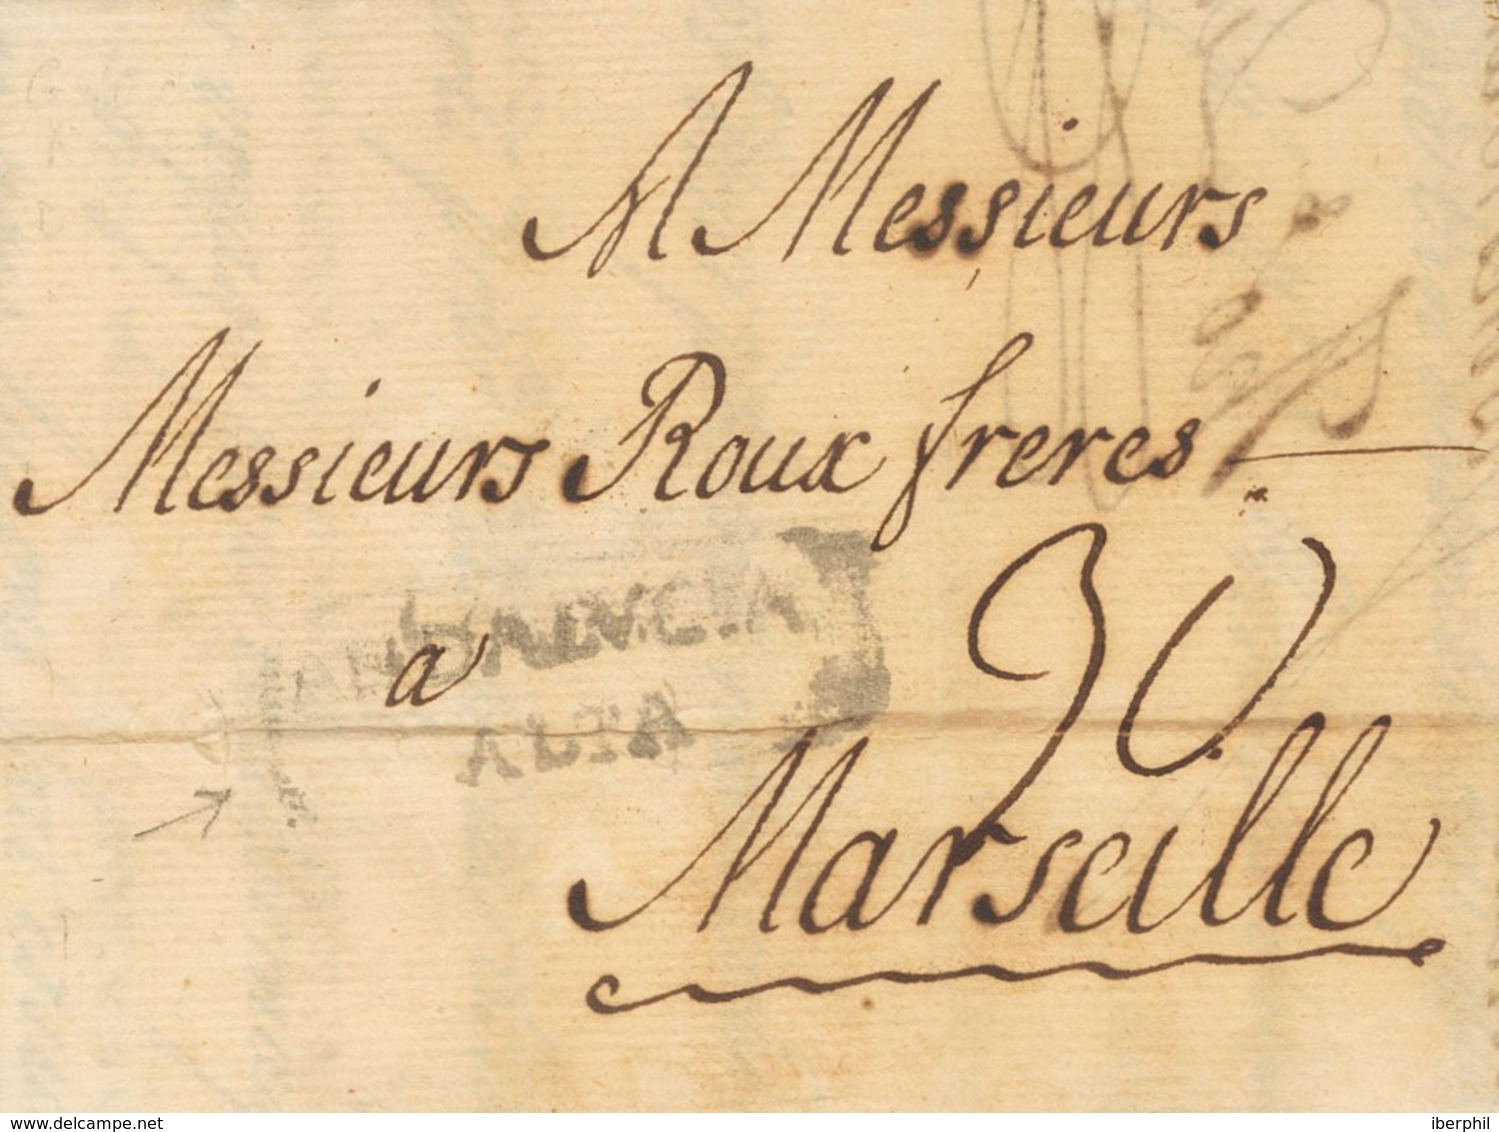 A Messieurs
Messieurs Roux freres
ANDALVCIA
ALTA
a
30
Marseille
www.delcampe.net
iberphil